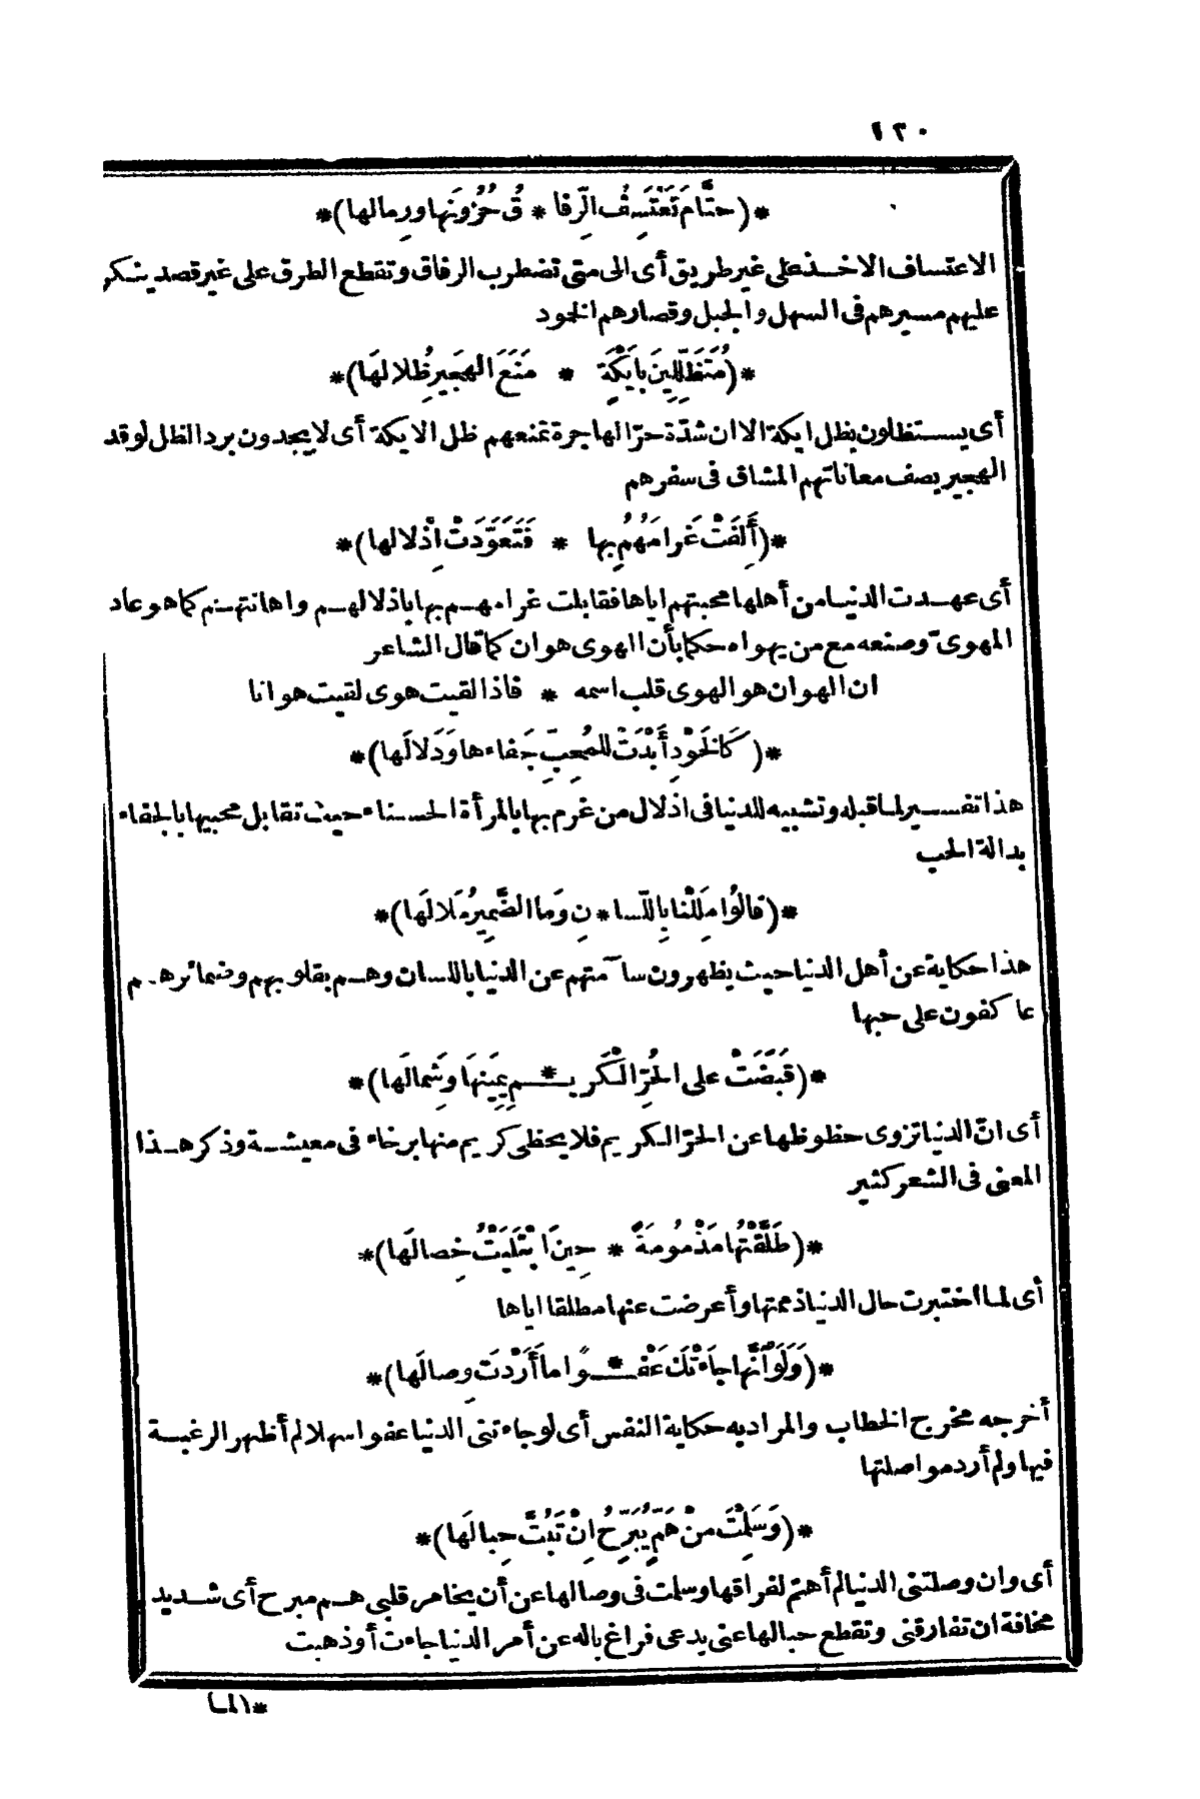 ١٢٠
*(حتَّامَ تَعْتَسِفُ الرِّفا * قُ حُزُونَها ورِمالها)*
الاعتساف الاخذ على غير طريق أى الى متى تضطرب الرفاق وتقطع الطرق على غير قصد ينكر
عليهم مسيرهم فى السهل والجبل وقصارهم الخود
*(مُتَظَلِّلِينَ بِأَيْكَةٍ * مَنَعَ الهَجَيرِ ظُلالهَا)*
أى يستظلون بظل ايكة الا ان شدّة حرّ الهاجرة تمنعهم ظل الايكة أى لا يجدون برد الظل لوقد
الهجير يصف معاناتهم المشاق فى سفرهم
*(أَلِفَتْ غَرامَهُمُ بِها * فَتَعَوَّدَتْ اِذْلالها)*
أى عهدت الدنيا من أهلها محبتهم اياها فقابلت غرامهم بها باذلالهم واهانتهم كما هو عاد
المهوىّ وصنعه مع من يهواه حكما بأن الهوى هوان كما قال الشاعر
ان الهوان هو الهوى قلب اسمه * فاذا لقيت هوى لقيت هوانا
*(كَالخَوْدِ أَبْدَتْ للمُحِبِّ جَفاءها وَدَلالَها)*
هذا تفسير لما قبله وتشبيه للدنيا فى اذلال من غرم بها بالمرأة الحسناء حيث تقابل محبيها بالجفاء
بدالة الحب
*(قالُوا مَلِلْنا بِاللّسا * نِ وَما الضَّمِيرُ مَلالَها)*
هذا حكاية عن أهل الدنيا حيث يظهرون سآمتهم عن الدنيا باللسان وهم بقلوبهم وضمائرهم
عاكفون على حبها
*(قَبَضَتْ على الحُرِّ الْكَرِيـ * ـمِ يمِينَهَا وشِمالَها)*
أى انّ الدنيا تزوى حظوظها عن الحرّ الكريم فلا يحظى كريم منها برخاء فى معيشة وذكر هذا
المعنى فى الشعر كثير
*(طَلَّقْتُها مَذْمُومَةً * حِينَ ابْتَلَيْتُ خِصالَها)*
أى لما اختبرت حال الدنيا ذممتها وأعرضت عنها مطلقا اياها
*(وَلَوَ انَّها جاءَتْكَ عَفْـ * ـوًا ما أَرَدْتَ وِصالَها)*
أخرجه مخرج الخطاب والمراد به حكاية النفس أى لو جاءتنى الدنيا عفوا سهلا لم أظهر الرغبة
فيها ولم أرد مواصلتها
*(وَسَلِمْتَ مِنْ هَمٍّ يُبَرِّحُ اِنْ تَبُتَّ حِبالَها)*
أى وان وصلتنى الدنيا لم أهتم لفراقها وسلمت فى وصالها عن أن يخامر قلبى هم مبرح أى شديد
مخافة ان تفارقنى وتقطع حبالها عنى يدعى فراغ باله عن أمر الدنيا جاءت أو ذهبت
*(لما